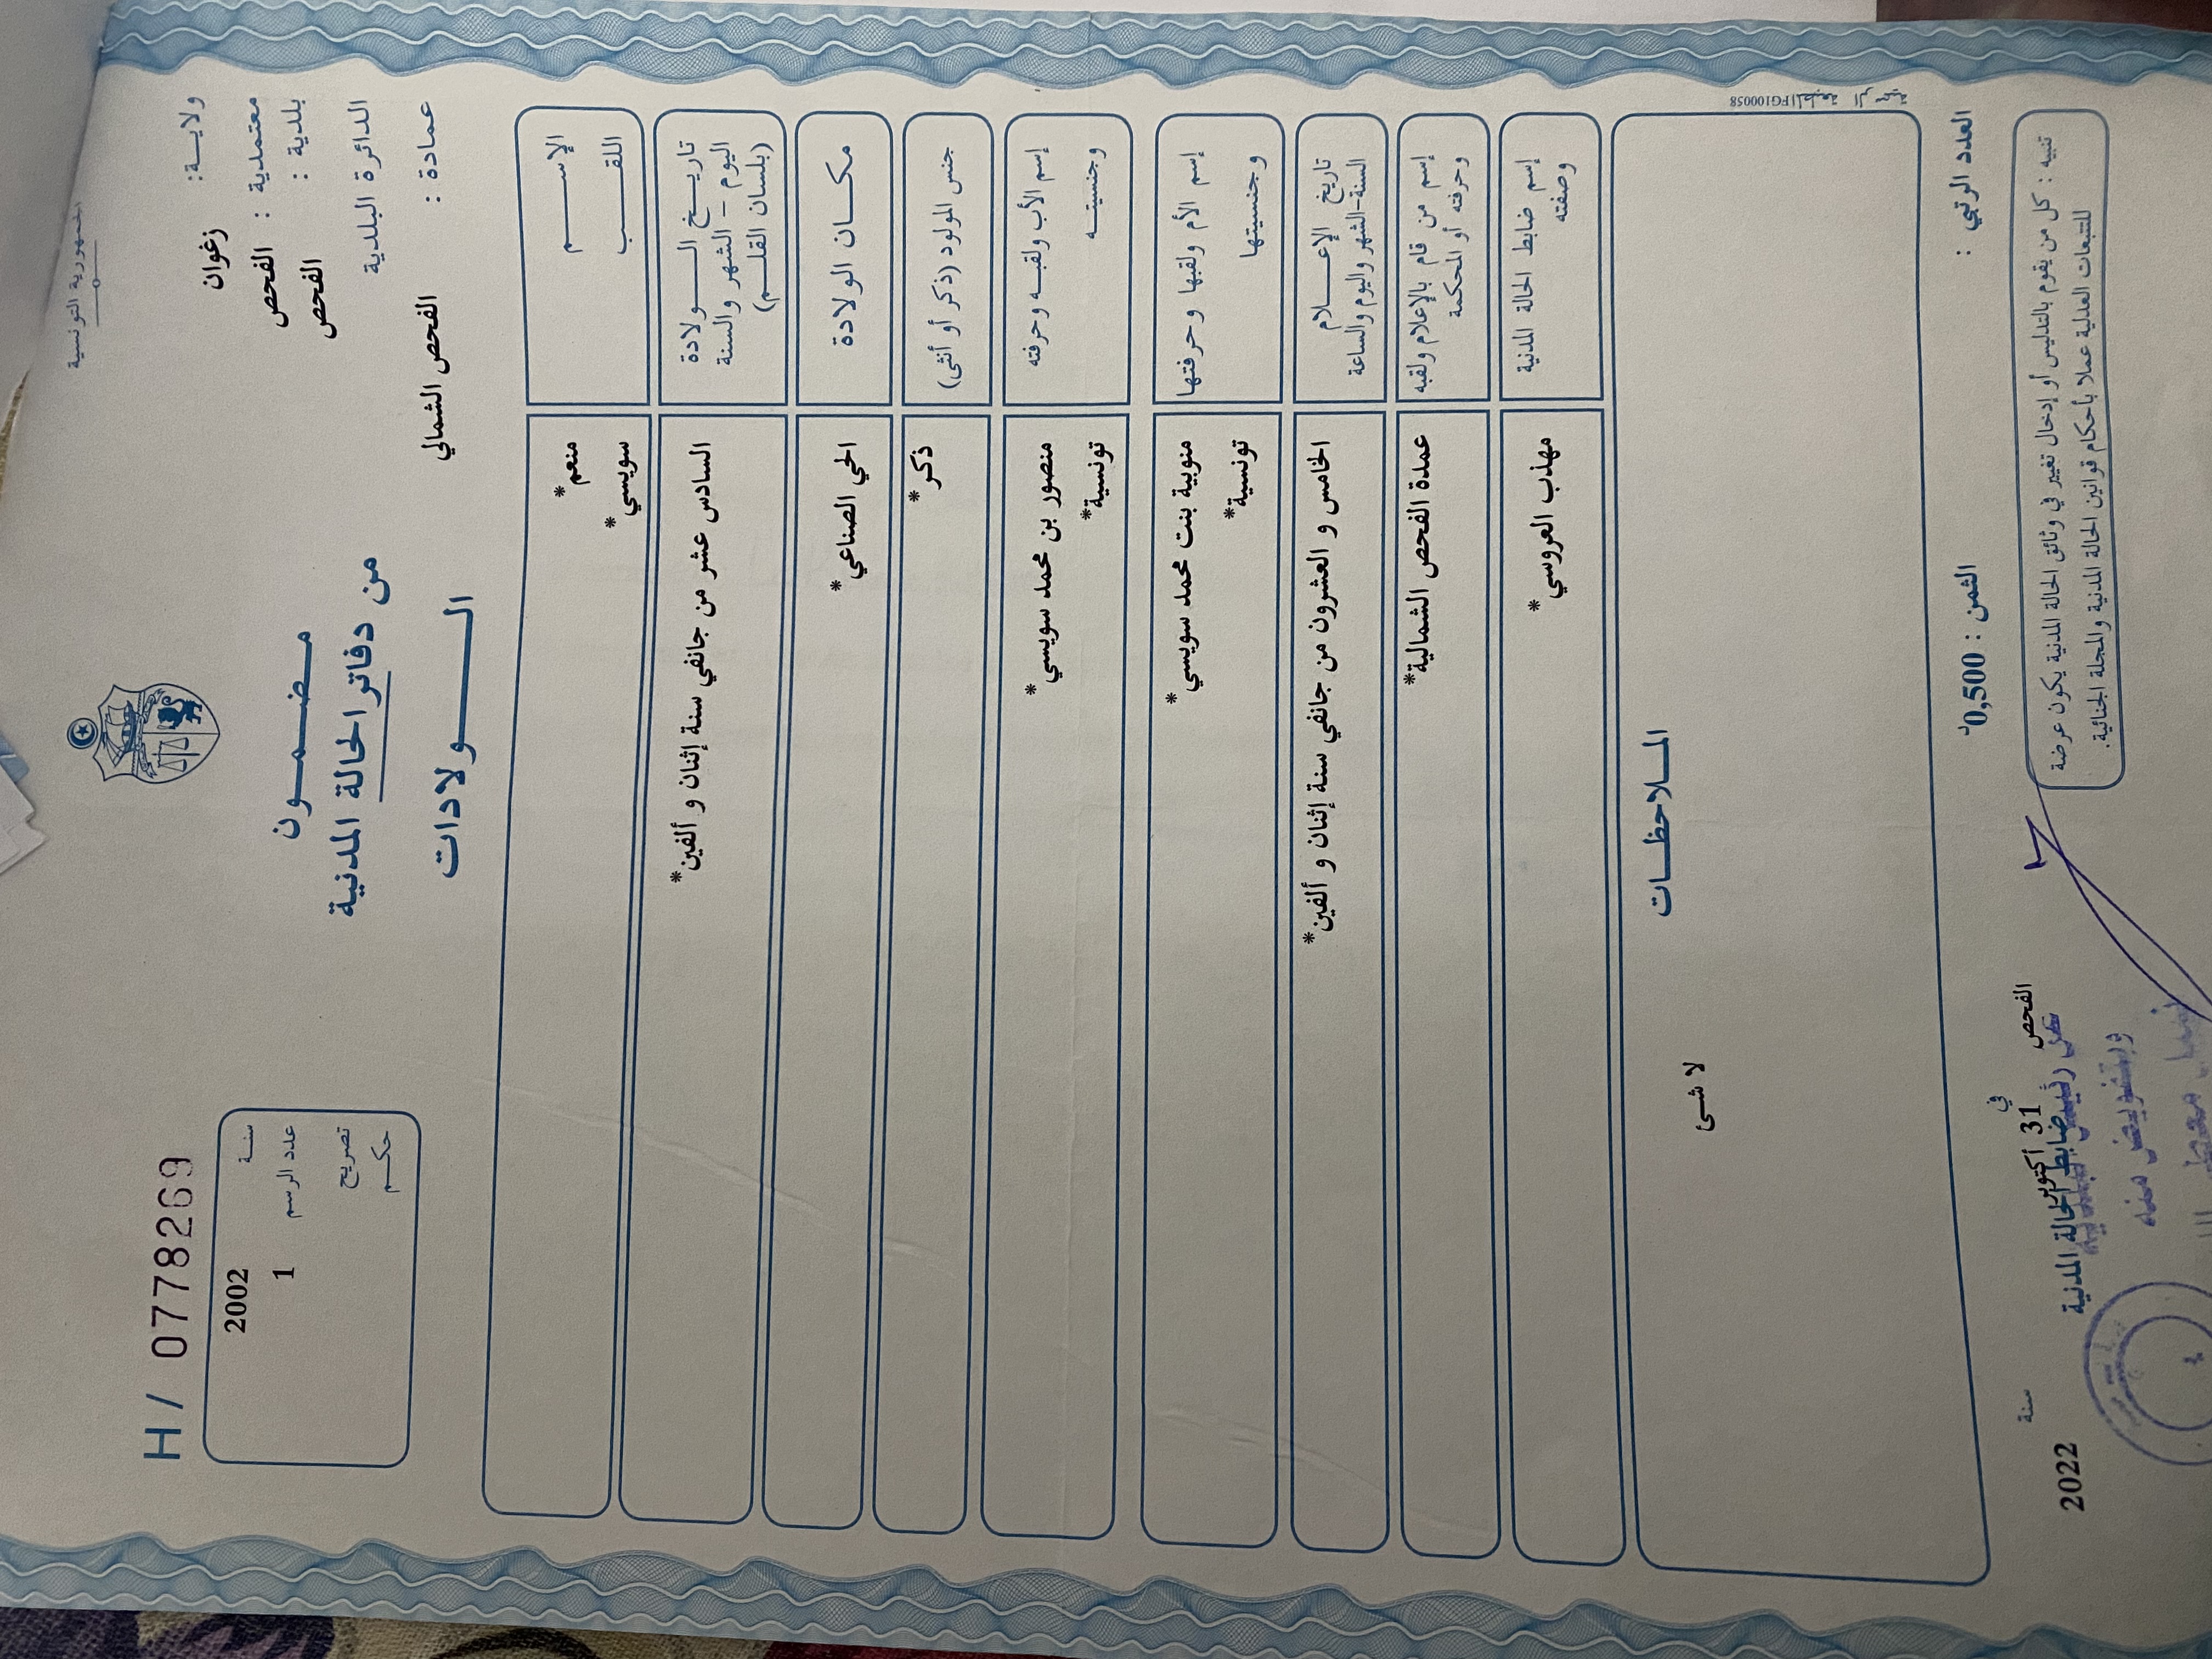 الجمهورية التونسية
ولاية: زغوان
معتمدية : الفحص
بلدية : الفحص
الدائرة البلدية
عمادة : الفحص الشمالي
مضمون
من دفاتر الحالة المدنية
الولادات
H / 0778269
سنة 2002
عدد الرسم 1
تصريح
حكم
الإسم منعم*
اللقب سويسي*
تاريخ الولادة
اليوم - الشهر والسنة
(بلسان القلم)
السادس عشر من جانفي سنة إثنان و ألفين*
مكان الولادة الحي الصناعي*
جنس المولود (ذكر أو أنثى) ذكر*
إسم الأب ولقبه وحرفته منصور بن محمد سويسي*
وجنسيته تونسية*
إسم الأم ولقبها وحرفتها منوبية بنت محمد سويسي*
وجنسيتها تونسية*
تاريخ الإعلام
السنة-الشهر واليوم والساعة
الخامس و العشرون من جانفي سنة إثنان و ألفين*
إسم من قام بالإعلام ولقبه
وحرفته أو المحكمة
عمدة الفحص الشمالية*
إسم ضابط الحالة المدنية
وصفته
مهذب العروسي*
الملاحظات
لا شئ
FG100058
العدد الرتبي :
الثمن : 0,500د
تنبيه : كل من يقوم بالتدليس أو إدخال تغيير في وثائق الحالة المدنية يكون عرضة
للتتبعات العدلية عملا بأحكام قوانين الحالة المدنية والمجلة الجنائية.
الفحص في 31 أكتوبر سنة 2022
ضابط الحالة المدنية
وبتفويض منه